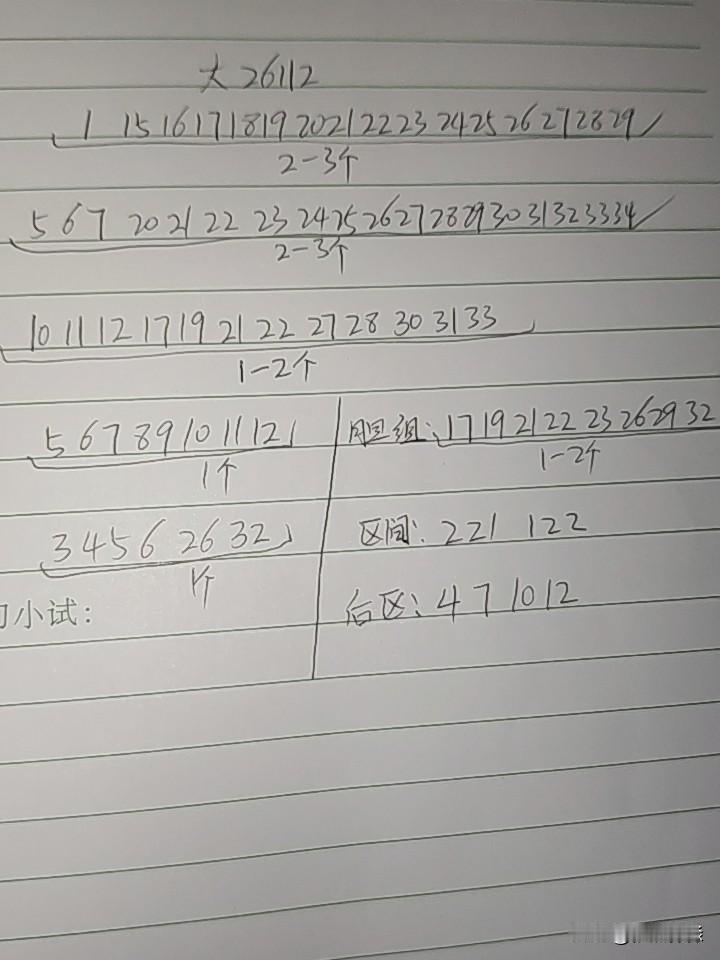 大26112
1 15 16 17 18 19 20 21 22 23 24 25 26 27 28 29
2-3个
5 6 7 20 21 22 23 24 25 26 27 28 29 30 31 32 33 34
2-3个
10 11 12 17 19 21 22 27 28 30 31 33
1-2个
5 6 7 8 9 10 11 12
1个
胆组:17 19 21 22 23 26 29 32
1-2个
3 4 5 6 26 32
1个
区间:221 122
小试:
后区:4 7 10 12